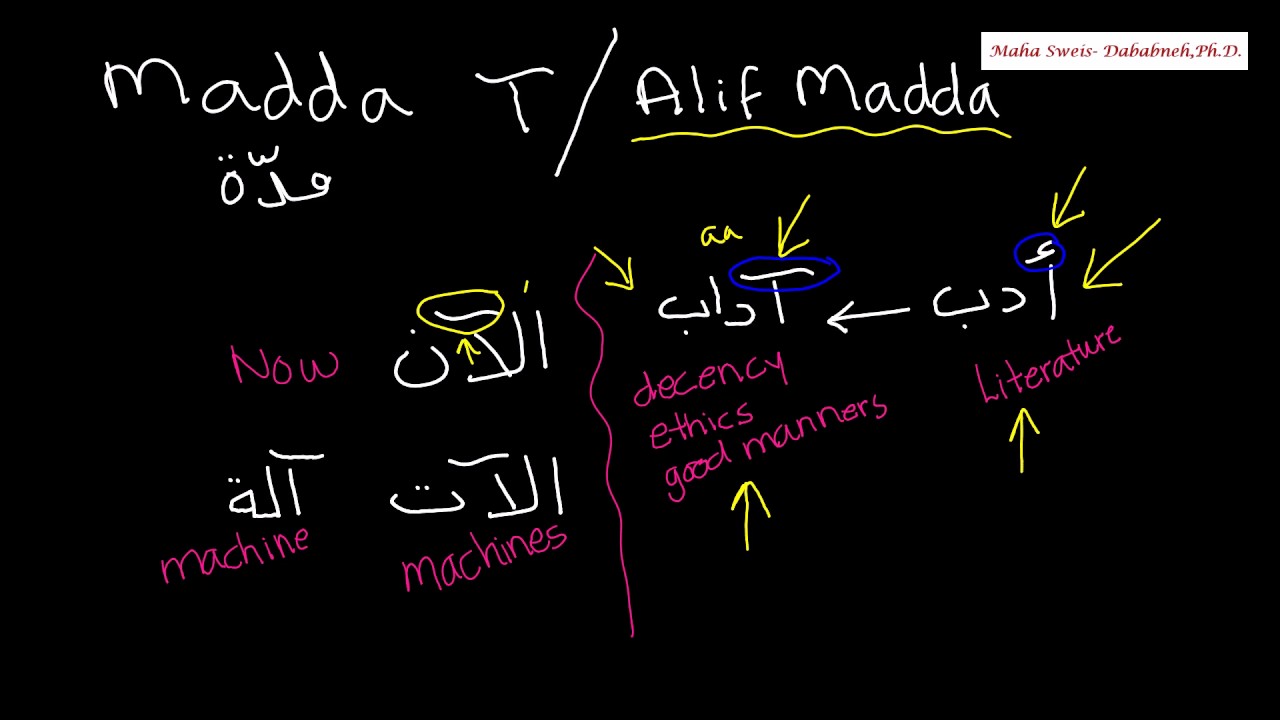 Maha Sweis- Dababneh,Ph.D.
Madda آ / Alif Madda
مدّة
aa
أدب ← آداب
Literature
decency
ethics
good manners
ألآن
Now
الآت
machines
آلة
machine